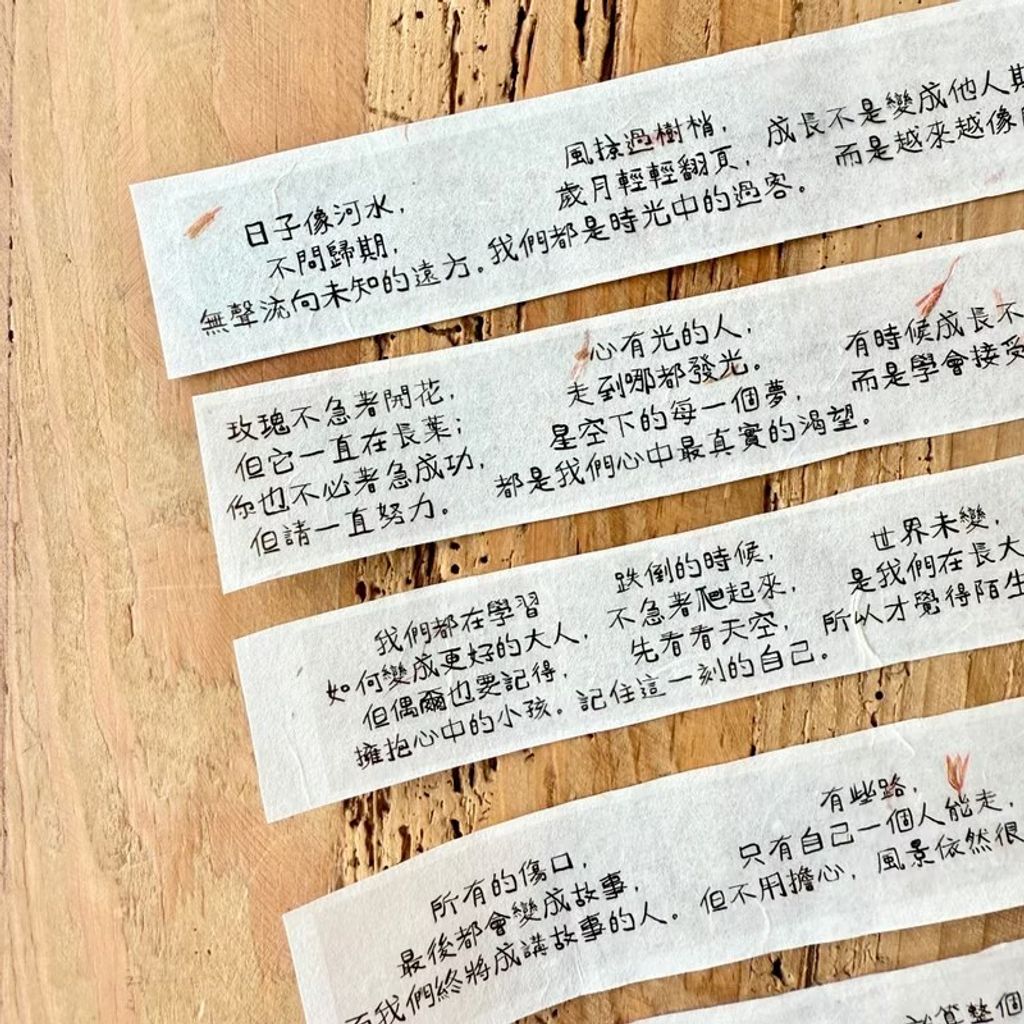 日子像河水,
不問歸期,
無聲流向未知的遠方.
風掠過樹梢,
歲月輕輕翻頁,
我們都是時光中的過客。
成長不是變成他人期
而是越來越像
玫瑰不急著開花,
但它一直在長葉;
你也不必著急成功,
但請一直努力。
心有光的人,
走到哪都發光。
星空下的每一個夢,
都是我們心中最真實的渴望。
有時候成長不
而是學會接受
我們都在學習
如何變成更好的大人,
但偶爾也要記得,
擁抱心中的小孩.
跌倒的時候,
不急著爬起來,
先看看天空,
記住這一刻的自己。
世界未變,
是我們在長大
所以才覺得陌生
所有的傷口,
最後都會變成故事,
而我們終將成講故事的人。
有些路,
只有自己一個人能走,
但不用擔心,風景依然很
算整個